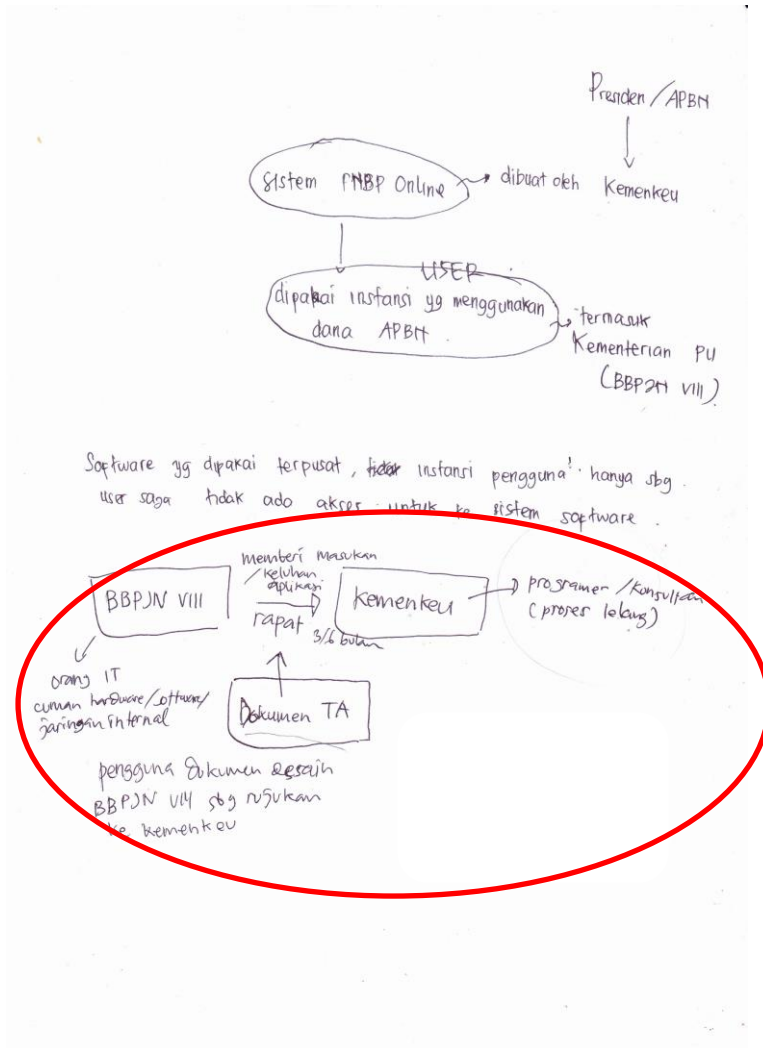 Presiden / APBN
Sistem PNBP Online
dibuat oleh Kemenkeu
USER
dipakai instansi yg menggunakan
dana APBN.
termasuk
Kementerian PU
(BBPJN VIII)
Software yg dipakai terpusat, tidak instansi pengguna hanya sbg.
user saja tidak ado akses untuk ke sistem software.
memberi masukan
/keluhan
aplikasi
BBPJN VIII
rapat
3/6 bulan
Kemenkeu
programer / konsultan
(proses lelang)
orang IT
cuman hardware/software/
jaringan internal
Dokumen TA
pengguna dokumen desain
BBPJN VIII sbg rujukan
ke kemenkeu